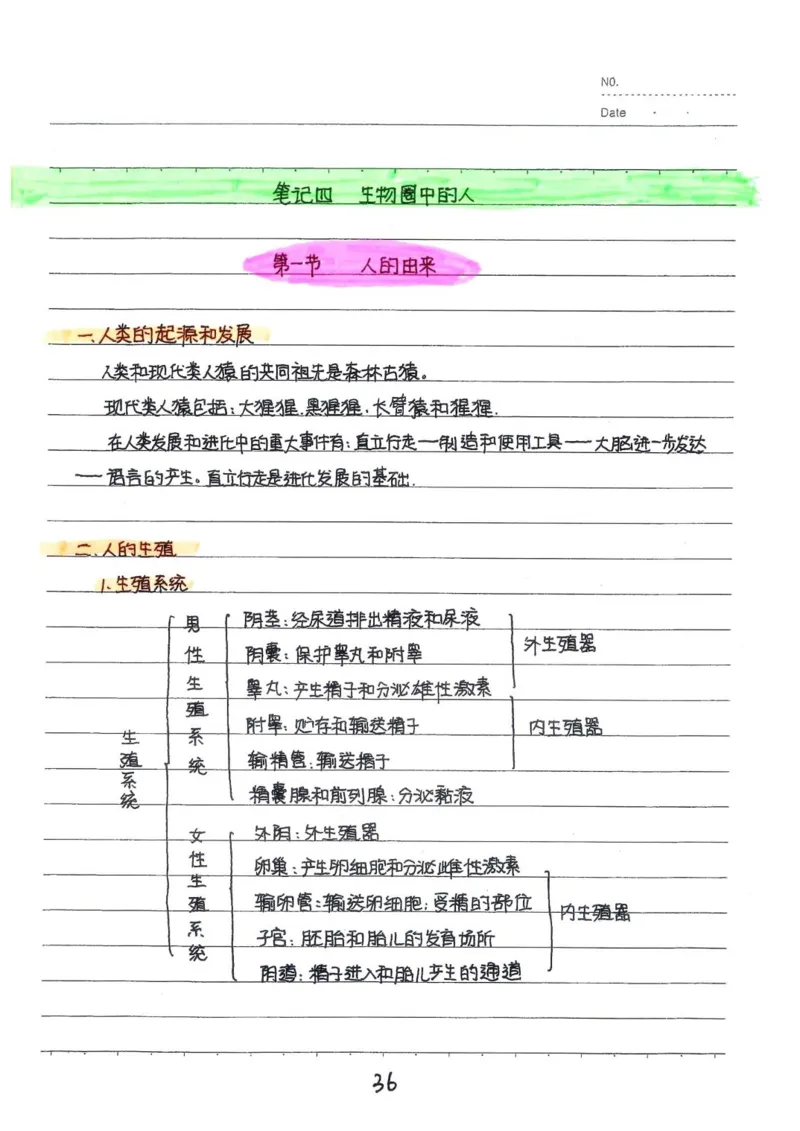 NO.
Date
笔记四 生物圈中的人
第一节 人的由来
一、人类的起源和发展
人类和现代类人猿的共同祖先是森林古猿。
现代类人猿包括:大猩猩、黑猩猩、长臂猿和猩猩.
在人类发展和进化中的重大事件有:直立行走——制造和使用工具——大脑进一步发达
——语言的产生。直立行走是进化发展的基础.
二、人的生殖
1、生殖系统
生殖系统
男性生殖系统
阴茎:经尿道排出精液和尿液
阴囊:保护睾丸和附睾
外生殖器
睾丸:产生精子和分泌雄性激素
附睾:贮存和输送精子
输精管:输送精子
内生殖器
精囊腺和前列腺:分泌黏液
女性生殖系统
外阴:外生殖器
卵巢:产生卵细胞和分泌雌性激素
输卵管:输送卵细胞;受精的部位
子宫:胚胎和胎儿的发育场所
阴道:精子进入和胎儿产生的通道
内生殖器
36